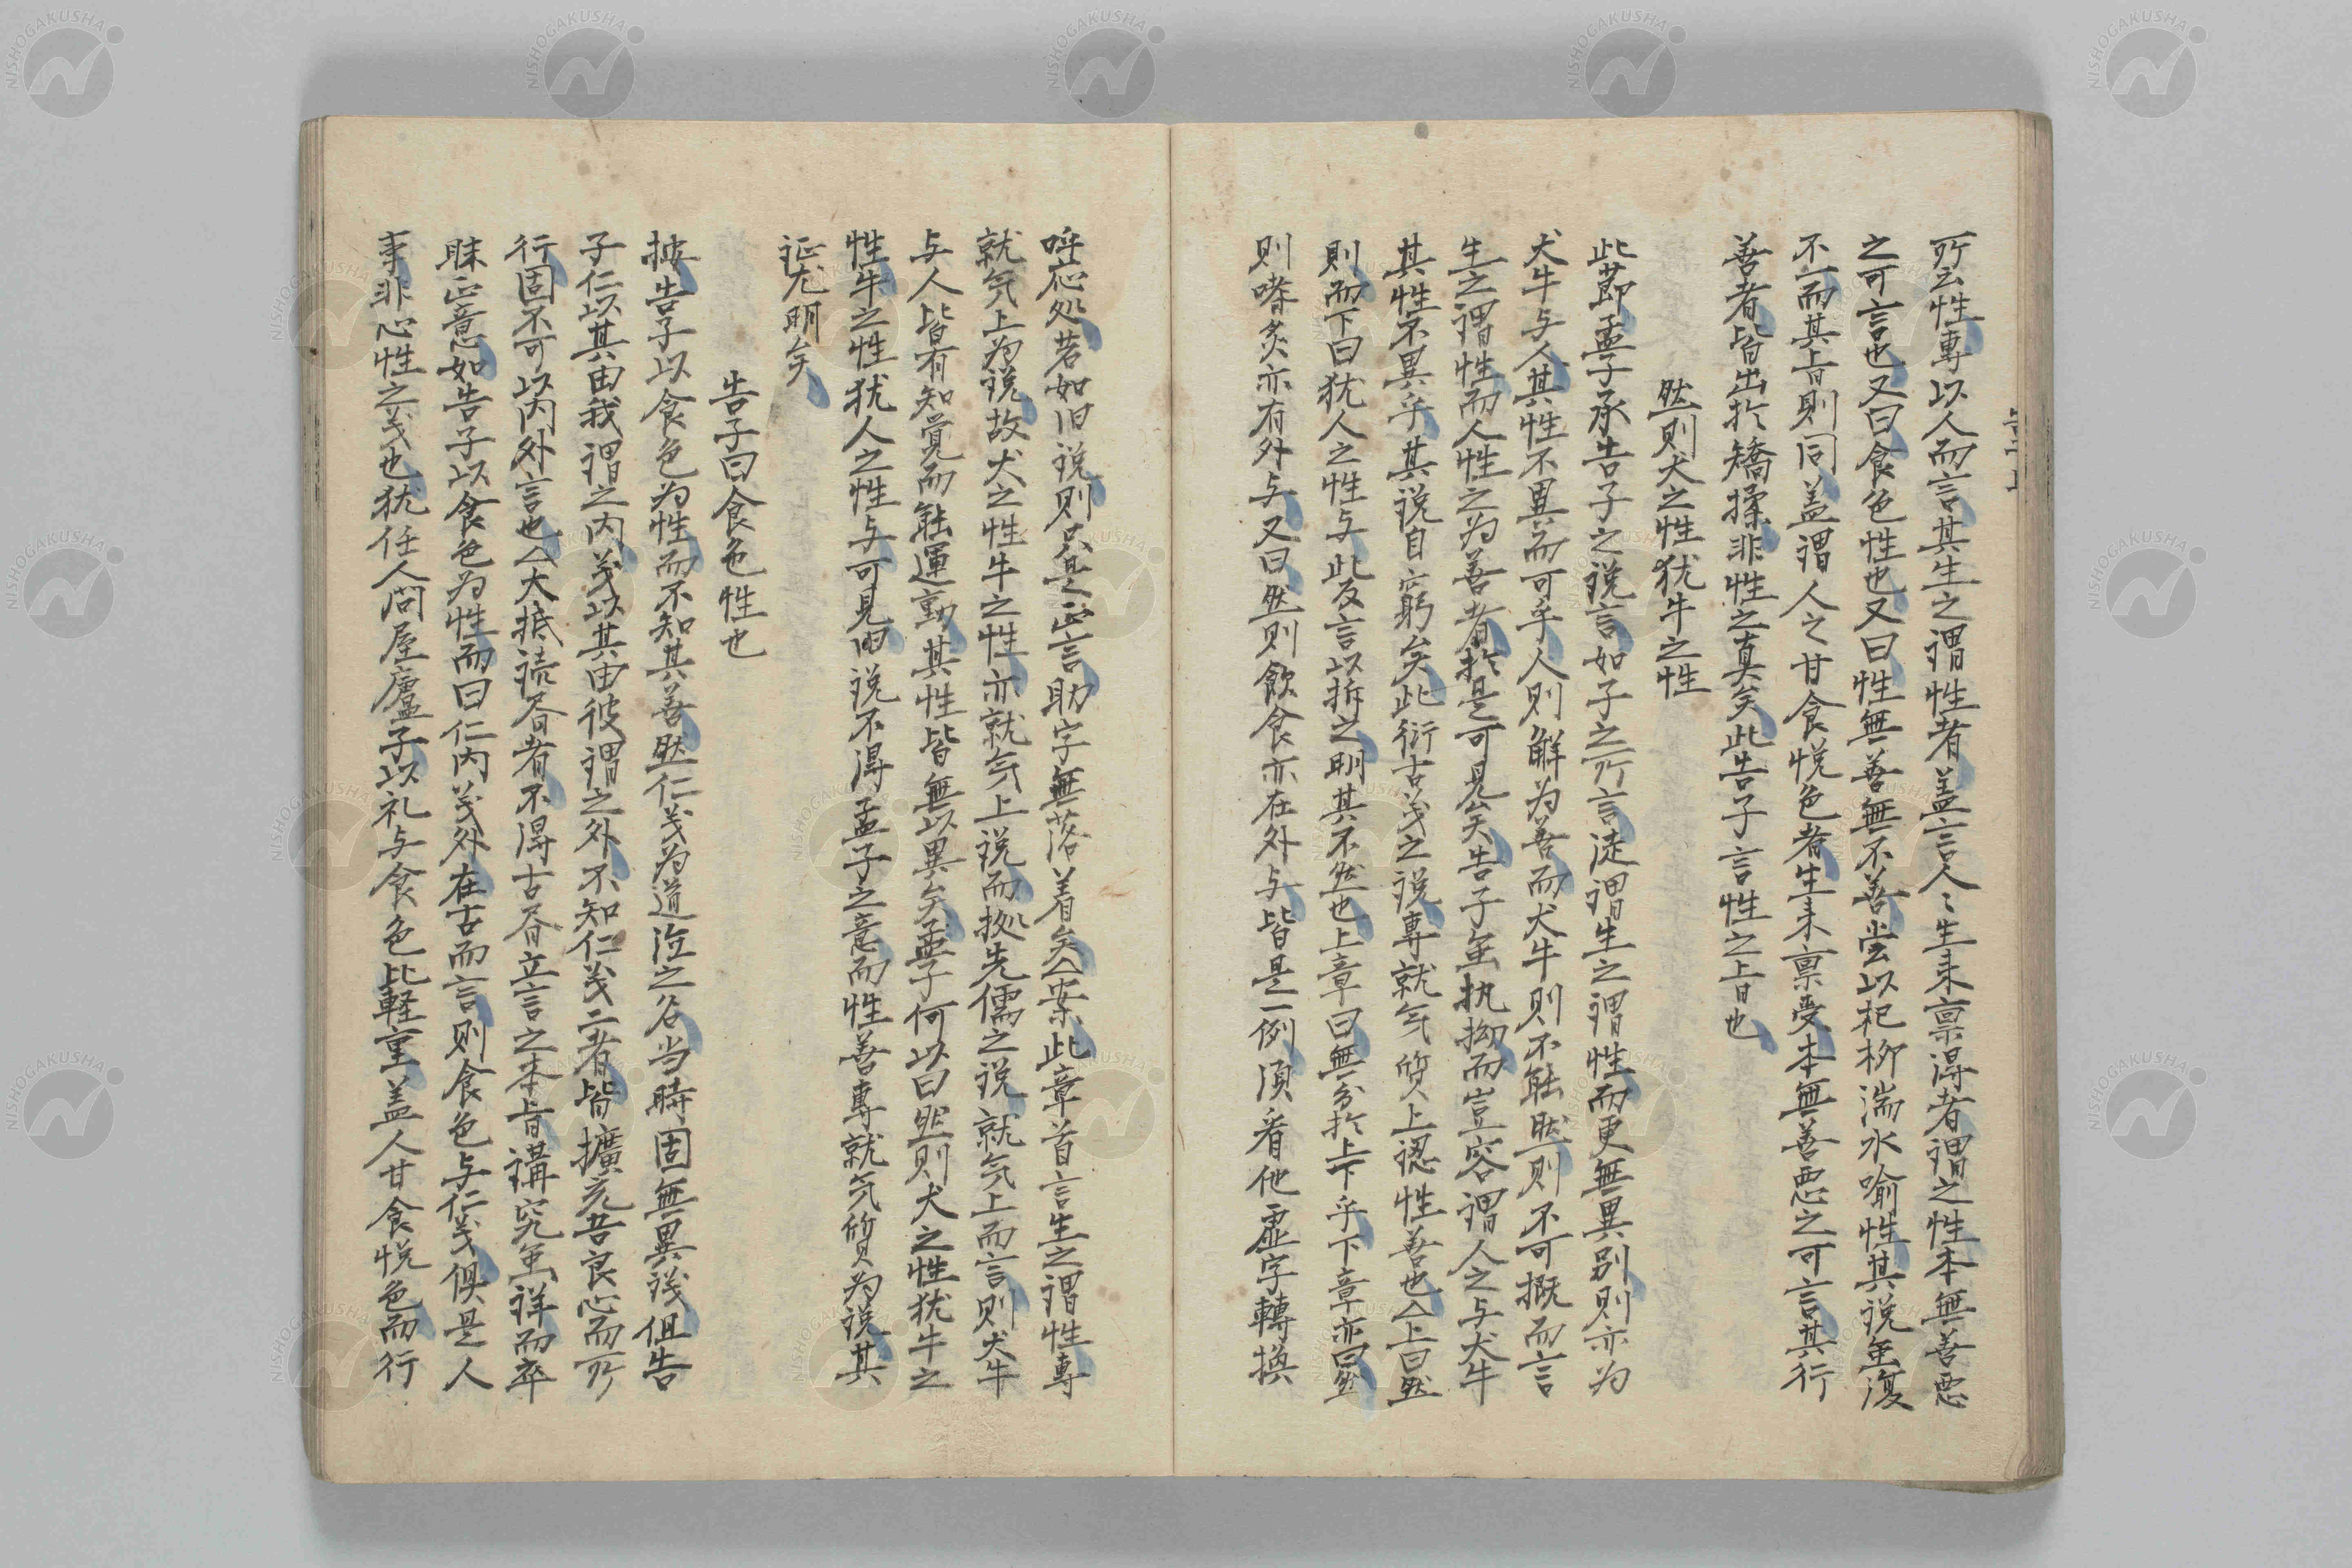 所云性専以人而言其生之謂性者盖言人〻生来禀得者謂之性本無善悪
之可言也又曰食色性也又曰性無善無不善嘗以杞柳湍水喻性其説雖復
不一而其旨則同盖謂人之甘食悦色者生来禀受本無善悪之可言其行
善者皆出於矯揉非性之真矣此告子言性之旨也
然則犬之性犹牛之性
此節孟子承告子之説言如子之所言徒謂生之謂性而更無異別則亦為
犬牛与人其性不異而可乎人則觧為善而犬牛則不能然則不可概而言
生之謂性而人性之為善者於是可見矣告子雖执拗而豈容謂人之与犬牛
其性不異乎其説自窮矣此衍古义之説専就气质上認性善也△上曰然
則而下曰犹人之性与此反言以折之明其不然也上章曰無分於上下乎下章亦曰然
則嗜炙亦有外与又曰然則飲食亦在外与皆是一例須看他虚字轉換
呼応処若如旧説則只是正言助字無落着矣△案此章首言生之謂性専
就气上为説故犬之性牛之性亦就气上説而拠先儒之説就气上而言則犬牛
与人皆有知覚而能運動其性皆無以異矣孟子何以曰然則犬之性犹牛之
性牛之性犹人之性与可見旧説不得孟子之意而性善専就气质为説其
证尤明矣
告子曰食色性也
按告子以食色为性而不知其善然仁义为道徳之名当時固無異議但告
子仁以其由我謂之内义以其由彼謂之外不知仁义二者皆擴充吾良心而所
行固不可以内外言也△大抵読書者不得古昔立言之本旨講究雖詳而卒
昧正意如告子以食色为性而曰仁内义外在古而言則食色与仁义俱是人
事非心性之义也犹任人问屋廬子以礼与食色比軽重盖人甘食悦色而行